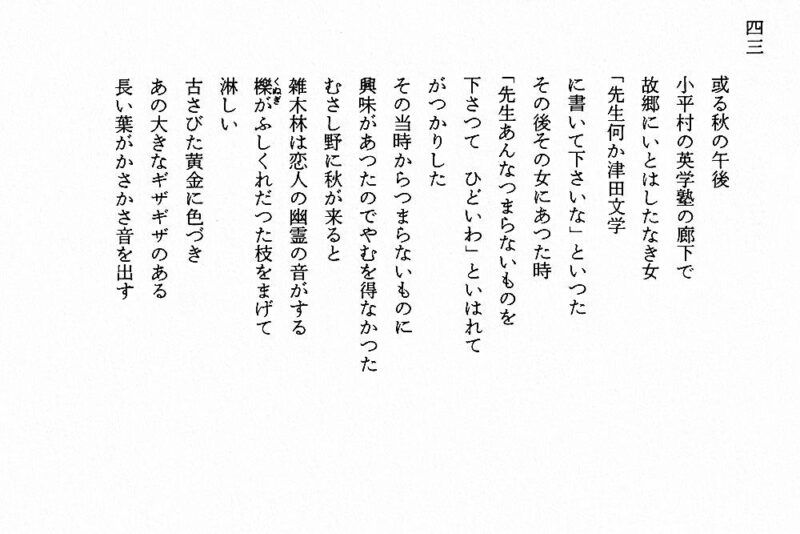 四三
或る秋の午後
小平村の英学塾の廊下で
故郷にいとはしたなき女
「先生何か津田文学
に書いて下さいな」といつた
その後その女にあつた時
「先生あんなつまらないものを
下さつて　ひどいわ」といはれて
がつかりした
その当時からつまらないものに
興味があつたのでやむを得なかつた
むさし野に秋が来ると
雑木林は恋人の幽霊の音がする
櫟がふしくれだつた枝をまげて
くぬぎ
淋しい
古さびた黄金に色づき
あの大きなギザギザのある
長い葉がかさかさ音を出す